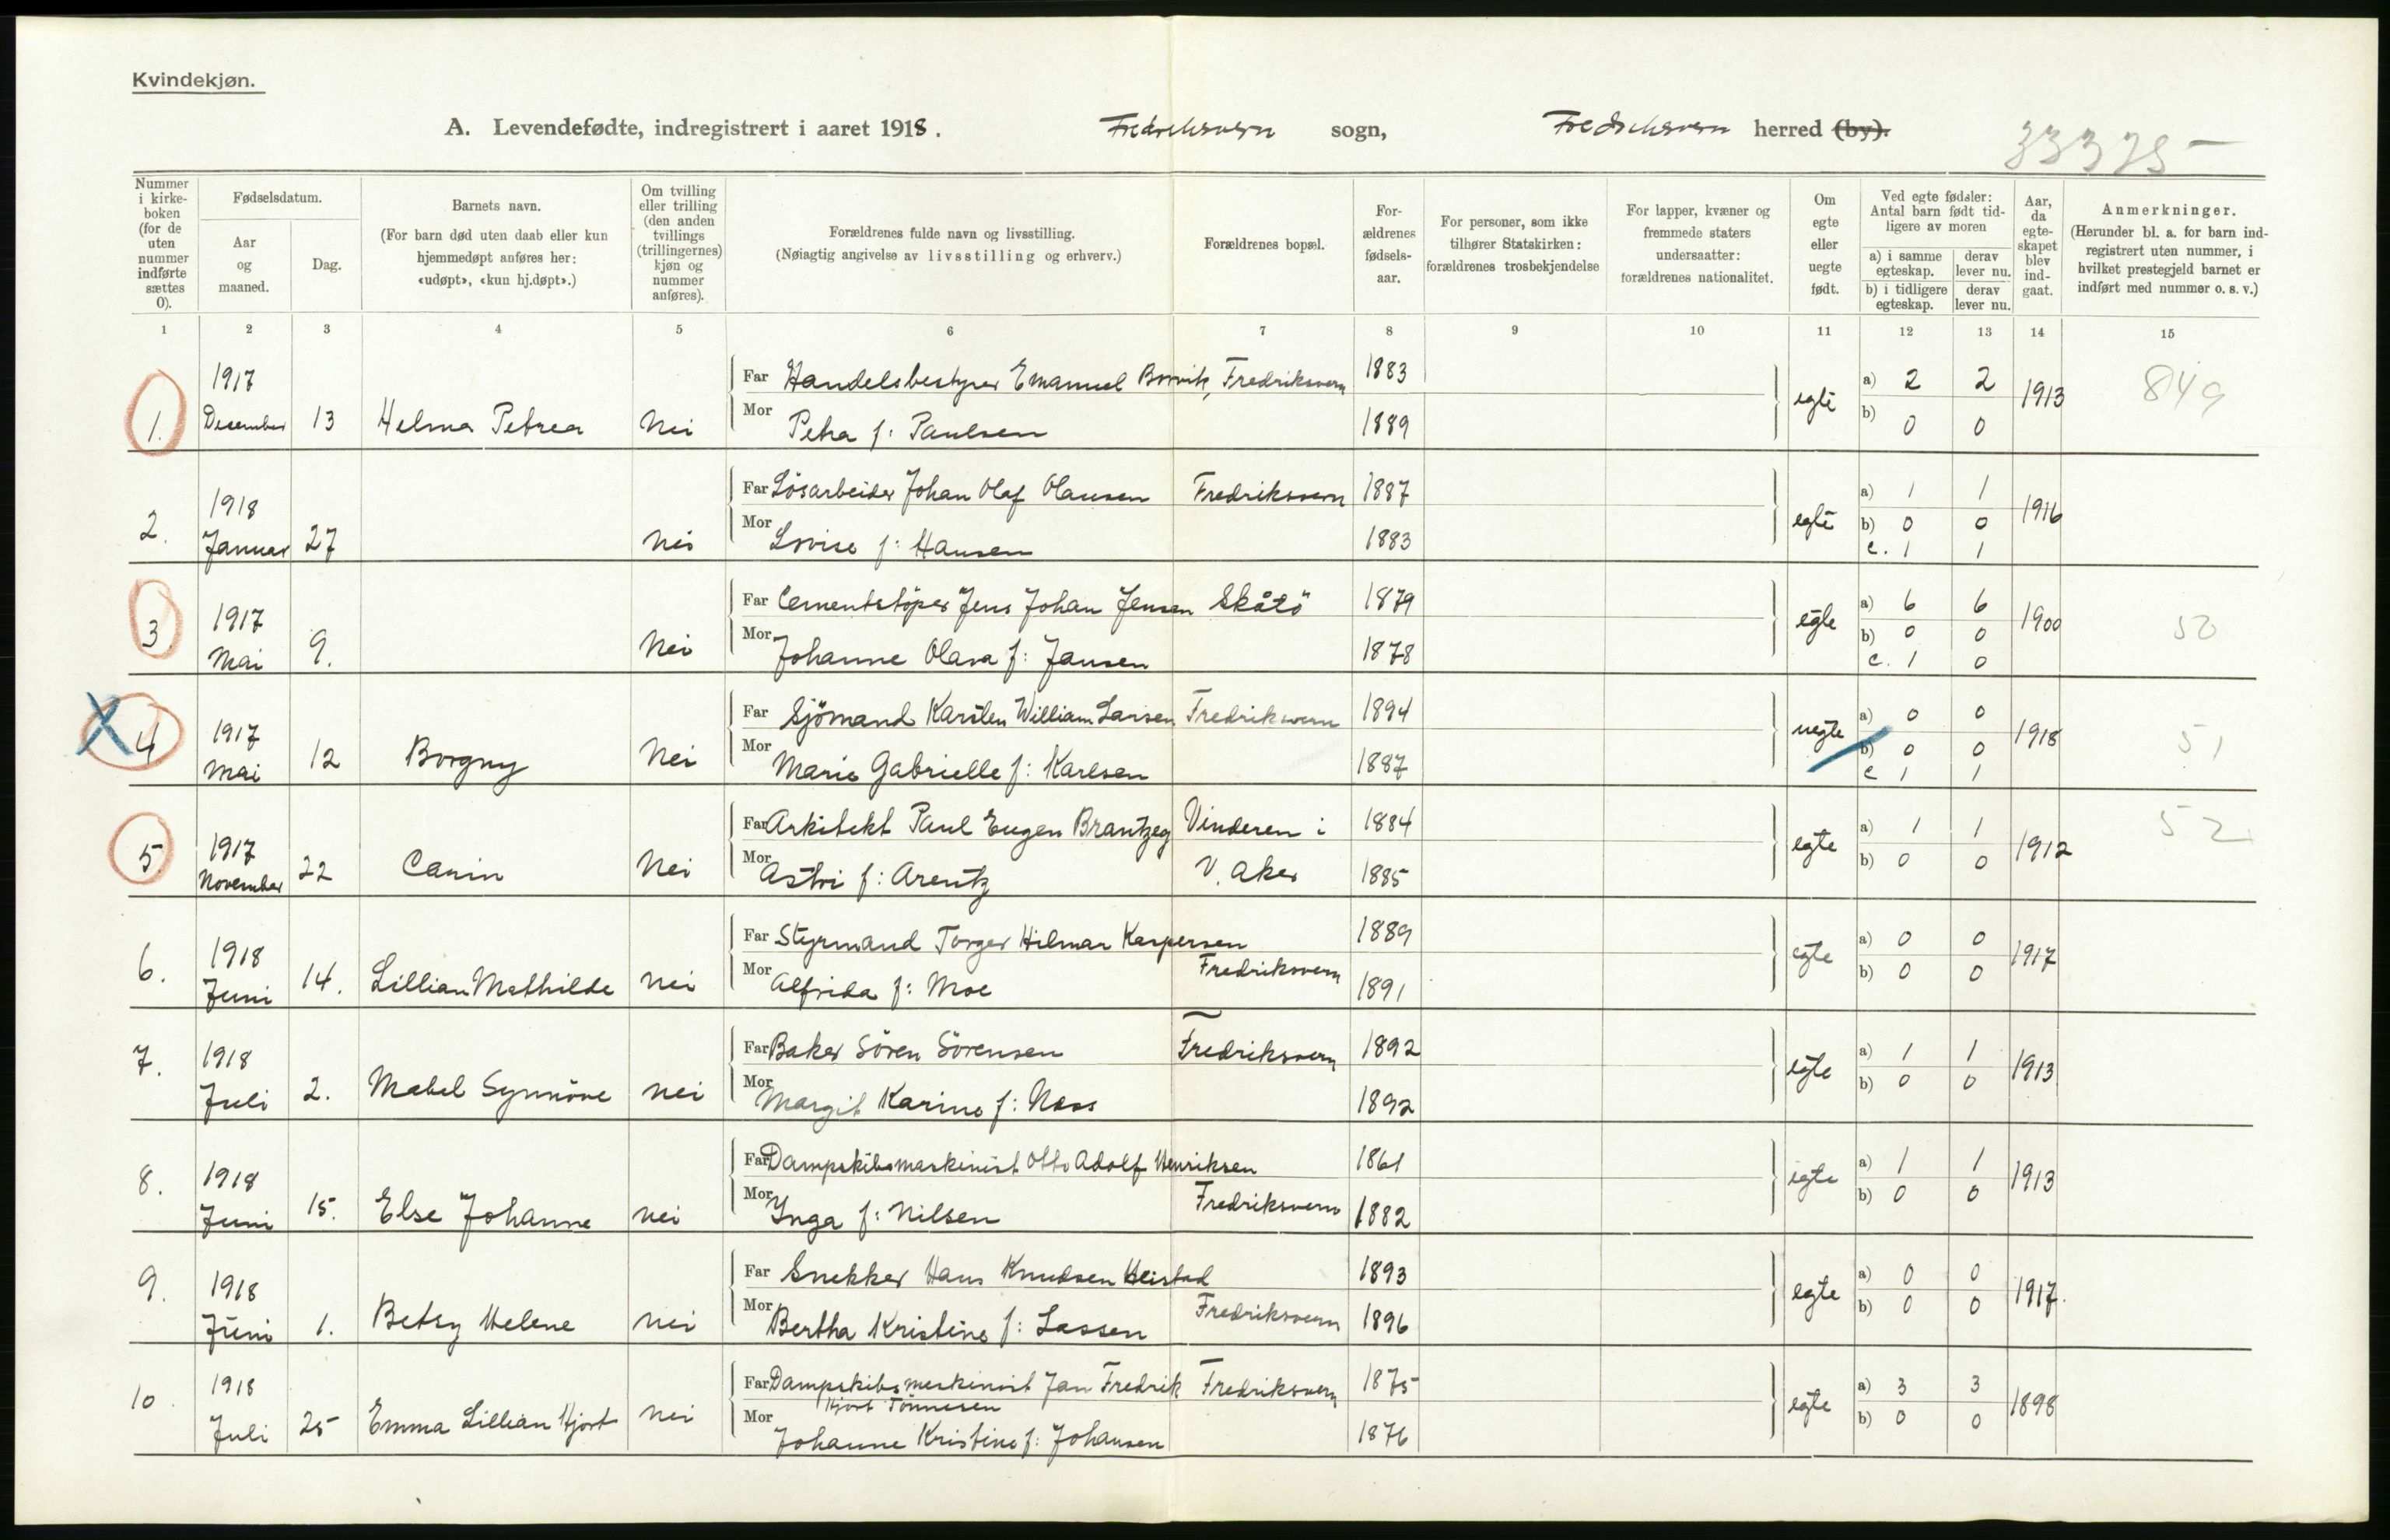 Kvindekjøn.
A. Levendefødte, indregistrert i aaret 1918. Fredriksvern sogn, Fredriksvern herred (by).
33375
Nummer i kirkeboken (for de uten nummer indførte sættes 0).
Fødselsdatum.
Aar og maaned.
Dag.
Barnets navn.
(For barn død uten daab eller kun hjemmedøpt anføres her: «udøpt», «kun hj.døpt».)
Om tvilling eller trilling (den anden tvillings (trillingernes) kjøn og nummer anføres).
Forældrenes fulde navn og livsstilling.
(Nøiagtig angivelse av livsstilling og erhverv.)
Forældrenes bopæl.
For-ældrenes fødsels-aar.
For personer, som ikke tilhører Statskirken: forældrenes trosbekjendelse
For lapper, kvæner og fremmede staters undersaatter: forældrenes nationalitet.
Om egte eller uegte født.
Ved egte fødsler: Antal barn født tidligere av moren
a) i samme egteskap.
derav lever nu.
b) i tidligere egteskap.
derav lever nu.
Aar, da egteskapet blev indgaat.
Anmerkninger.
(Herunder bl. a. for barn indregistrert uten nummer, i hvilket prestegjeld barnet er indført med nummer o. s. v.)
1 2 3 4 5 6 7 8 9 10 11 12 13 14 15
1. 1917 December 13 Helma Petrea Nei
Far Handelsbestyrer Emanuel Borvik, Fredriksvern 1883
Mor Petra f: Paulsen 1889
egte a) 2 2 b) 0 0 1913 849
2. 1918 Januar 27 Nei
Far Løsarbeider Johan Olaf Olausen Fredriksvern 1887
Mor Lovise f: Hansen 1883
egte a) 1 1 b) 0 0 c. 1 1 1916
3. 1917 Mai 9. Nei
Far Cementstöper Jens Johan Jensen Skåtö 1879
Mor Johanne Olava f: Jansen 1878
egte a) 6 6 b) 0 0 c. 1 0 1900 50
X 4 1917 Mai 12 Borgny Nei
Far Sjömand Karsten William Larsen Fredriksvern 1894
Mor Marie Gabrielle f: Karlsen 1887
uegte a) 0 0 b) 0 0 c 1 1 1918 51
5. 1917 November 22 Carin Nei
Far Arkitekt Paul Eugen Brantzeg Vinderen i 1884
Mor Astri f: Arentz V. Aker 1885
egte a) 1 1 b) 0 0 1912 52
6. 1918 Juni 14. Lillian Mathilde nei
Far Styrmand Torger Hilmar Kaspersen 1889
Mor Alfrida f: Moe Fredriksvern 1891
egte a) 0 0 b) 0 0 1917
7. 1918 Juli 2. Mabel Synnöve nei
Far Baker Sören Sörensen Fredriksvern 1892
Mor Margit Karine f: Næss 1892
egte a) 1 1 b) 0 0 1913
8. 1918 Juni 15. Else Johanne nei
Far Dampskibsmaskinist Otto Adolf Henriksen 1861
Mor Inga f: Nilsen Fredriksvern 1882
egte a) 1 1 b) 0 0 1913
9. 1918 Juni 1. Betsy Helene nei
Far Snekker Hans Knudsen Heistad 1893
Mor Bertha Kristine f: Lassen Fredriksvern 1896
egte a) 0 0 b) 0 0 1917.
10. 1918 Juli 25 Emma Lillian Hjort nei
Far Dampskibsmaskinist Jan Fredrik Fredriksvern 1875
Hjort Tönnesen
Mor Johanne Kristine f: Johansen 1876
egte a) 3 3 b) 0 0 1898